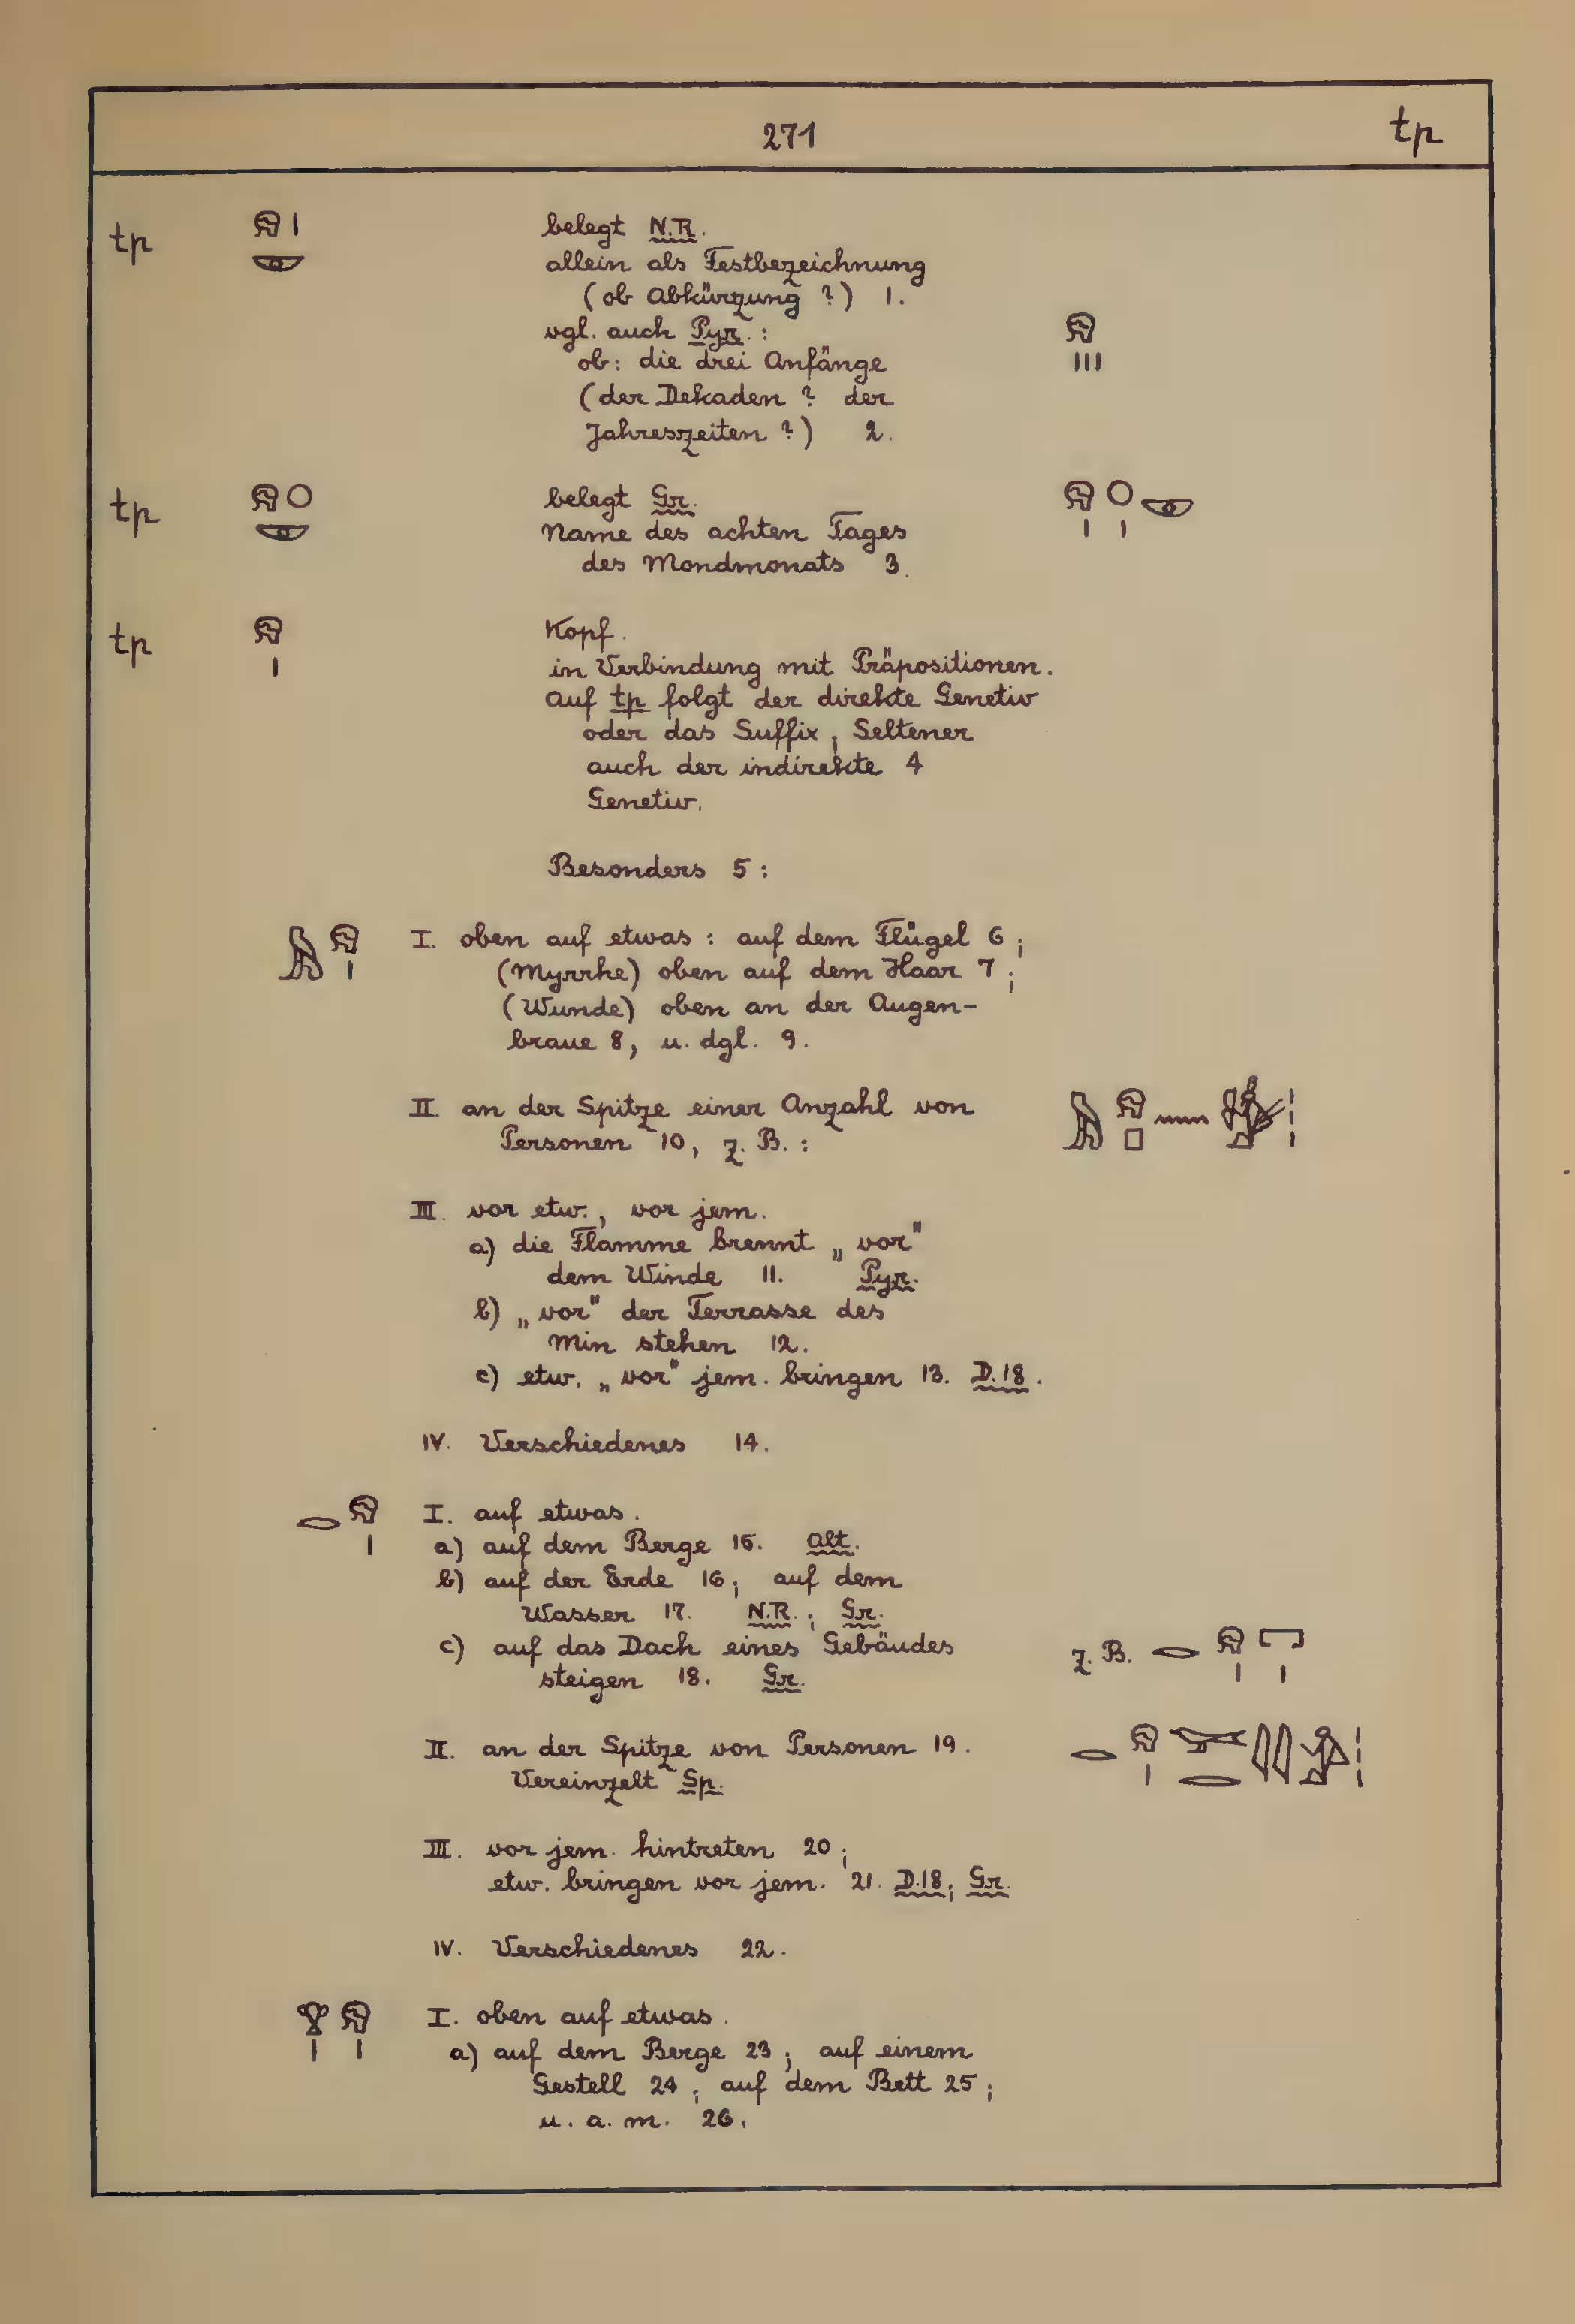 271 tp
tp 𓁶𓏤𓂀 belegt N.R.
allein als Festbezeichnung
(ob Abkürzung ?) 1.
vgl. auch Pyr. : 𓁶𓏥
ob: die drei Anfänge
(der Dekaden ? der
Jahreszeiten ?) 2.
tp belegt Gr.
Name des achten Tages
des Mondmonats 3.
tp 𓁶𓏤 Kopf.
in Verbindung mit Präpositionen.
Auf tp folgt der direkte Genetiv
oder das Suffix; Seltener
auch der indirekte 4
Genetiv.
Besonders 5 :
I. oben auf etwas : auf dem Flügel 6 ;
(Myrrhe) oben auf dem Haar 7 ;
(Wunde) oben an der Augen-
braue 8, u. dgl. 9.
II. an der Spitze einer Anzahl von
Personen 10, z. B. :
III. vor etw., vor jem.
a) die Flamme brennt „vor"
dem Winde 11. Pyr.
b) „vor" der Terrasse des
Min stehen 12.
c) etw. „vor" jem. bringen 13. D.18.
IV. Verschiedenes 14.
𓂋𓁶𓏤 I. auf etwas.
a) auf dem Berge 15. Alt.
b) auf der Erde 16; auf dem
Wasser 17. N.R.; Gr.
c) auf das Dach eines Gebäudes z. B. 𓂋𓁶𓏤𓉐𓏤
steigen 18. Gr.
II. an der Spitze von Personen 19.
Vereinzelt Sp.
III. vor jem. hintreten 20 ;
etw. bringen vor jem. 21. D.18; Gr.
IV. Verschiedenes 22.
𓁶𓏤 I. oben auf etwas.
a) auf dem Berge 23 ; auf einem
Gestell 24 ; auf dem Bett 25 ;
u. a. m. 26.